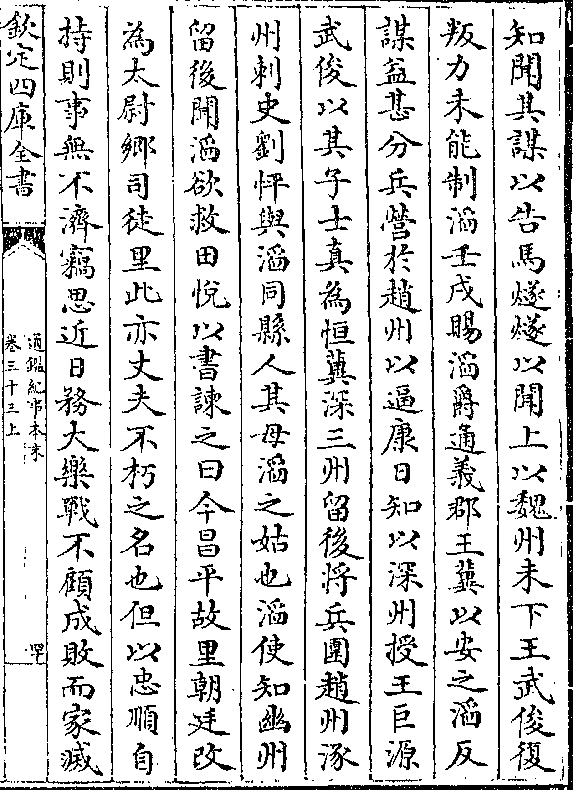 知聞其謀以告馬燧燧以聞上以魏州未下王武俊復
叛力未能制滔壬戌賜滔爵通義郡王冀以安之滔反
謀益甚分兵營於趙州以逼康日知以深州授王巨源
武俊以其子士真為恒冀深三州留後將兵圍趙州涿
州刺史劉怦與滔同縣人其母滔之姑也滔使知幽州
留後聞滔欲救田悅以書諫之曰今昌平故里朝廷改
為太尉鄉司徒里此亦丈夫不朽之名也但以忠順自
持則事無不濟竊思近日務大樂戰不顧成敗而家滅
欽定四庫全書
通鑑紀事本末
卷三十三上